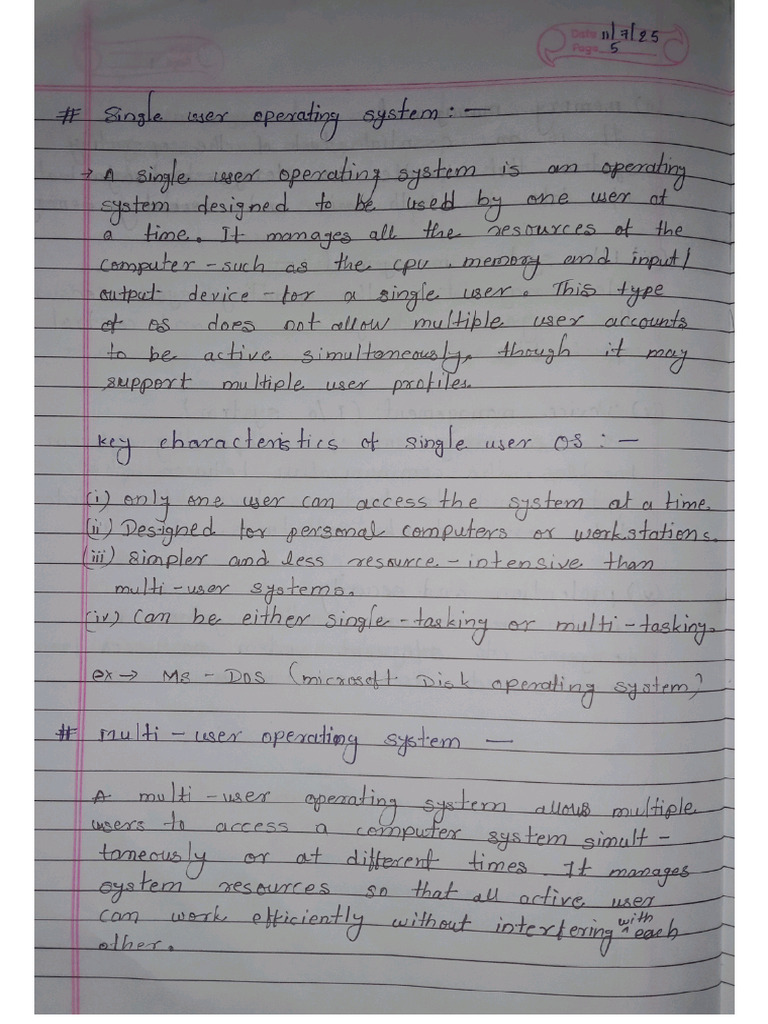 Date 11/7/25
Page 5
# Single user operating system : —
→ A single user operating system is an operating
system designed to be used by one user at
a time. It manages all the resources of the
computer - such as the cpu, memory and input/
output device - for a single user. This type
of os does not allow multiple user accounts
to be active simultaneously, though it may
support multiple user profiles.
Key characteristics of single user OS : —
(i) only one user can access the system at a time.
(ii) Designed for personal computers or workstations.
(iii) simpler and less resource - intensive than
multi - user systems.
(iv) can be either single - tasking or multi - tasking.
ex → MS - DOS (microsoft Disk operating system)
# Multi - user operating system —
A multi - user operating system allows multiple
users to access a computer system simult -
taneously or at different times. It manages
system resources so that all active user
can work efficiently without interfering with each
other.